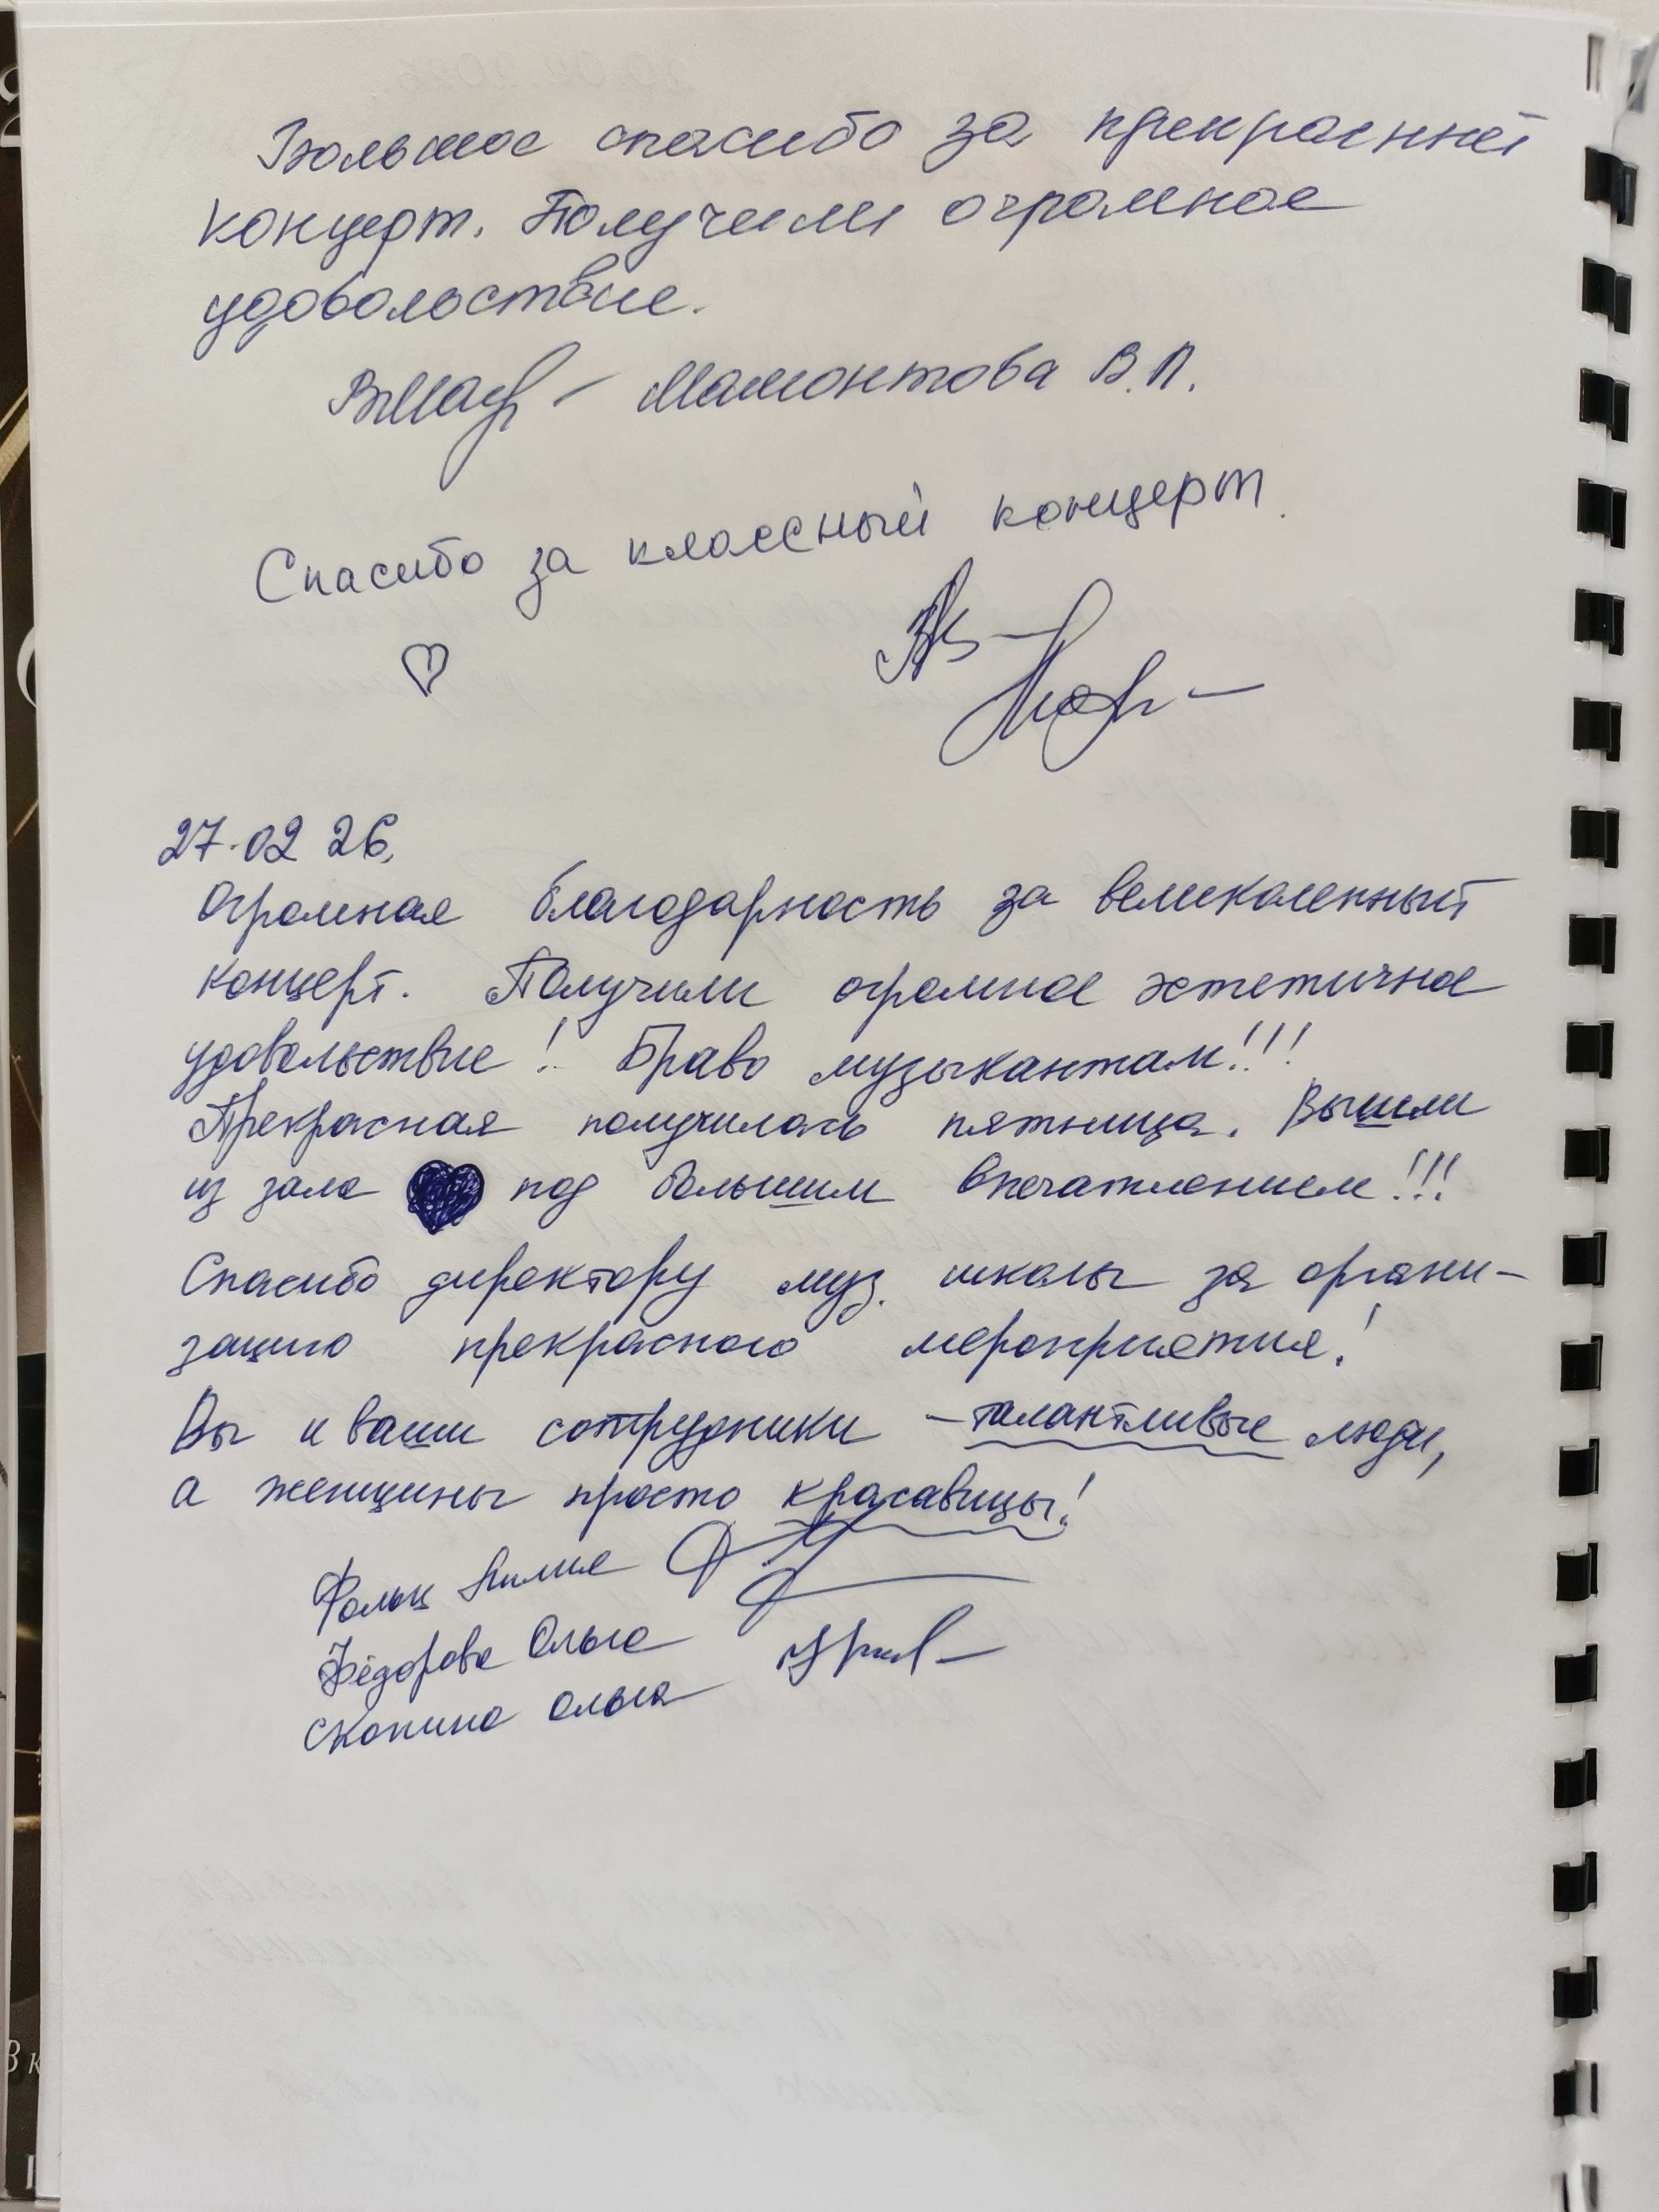 Большое спасибо за прекрасный
концерт. Получили огромное
удовольствие.
Мамонтова В.П.
Спасибо за классный концерт.
27.02 26.
Огромная благодарность за великолепный
концерт. Получили огромное эстетичное
удовольствие! Браво музыкантам!!!
Прекрасная получилась пятница. Вышли
из зала под большим впечатлением!!!
Спасибо директору муз. школы за органи-
зацию прекрасного мероприятия!
Вы и ваши сотрудники - талантливые люди,
а женщины просто красавицы!
Фольц Лилия
Фёдорова Ольга
Скопина Ольга